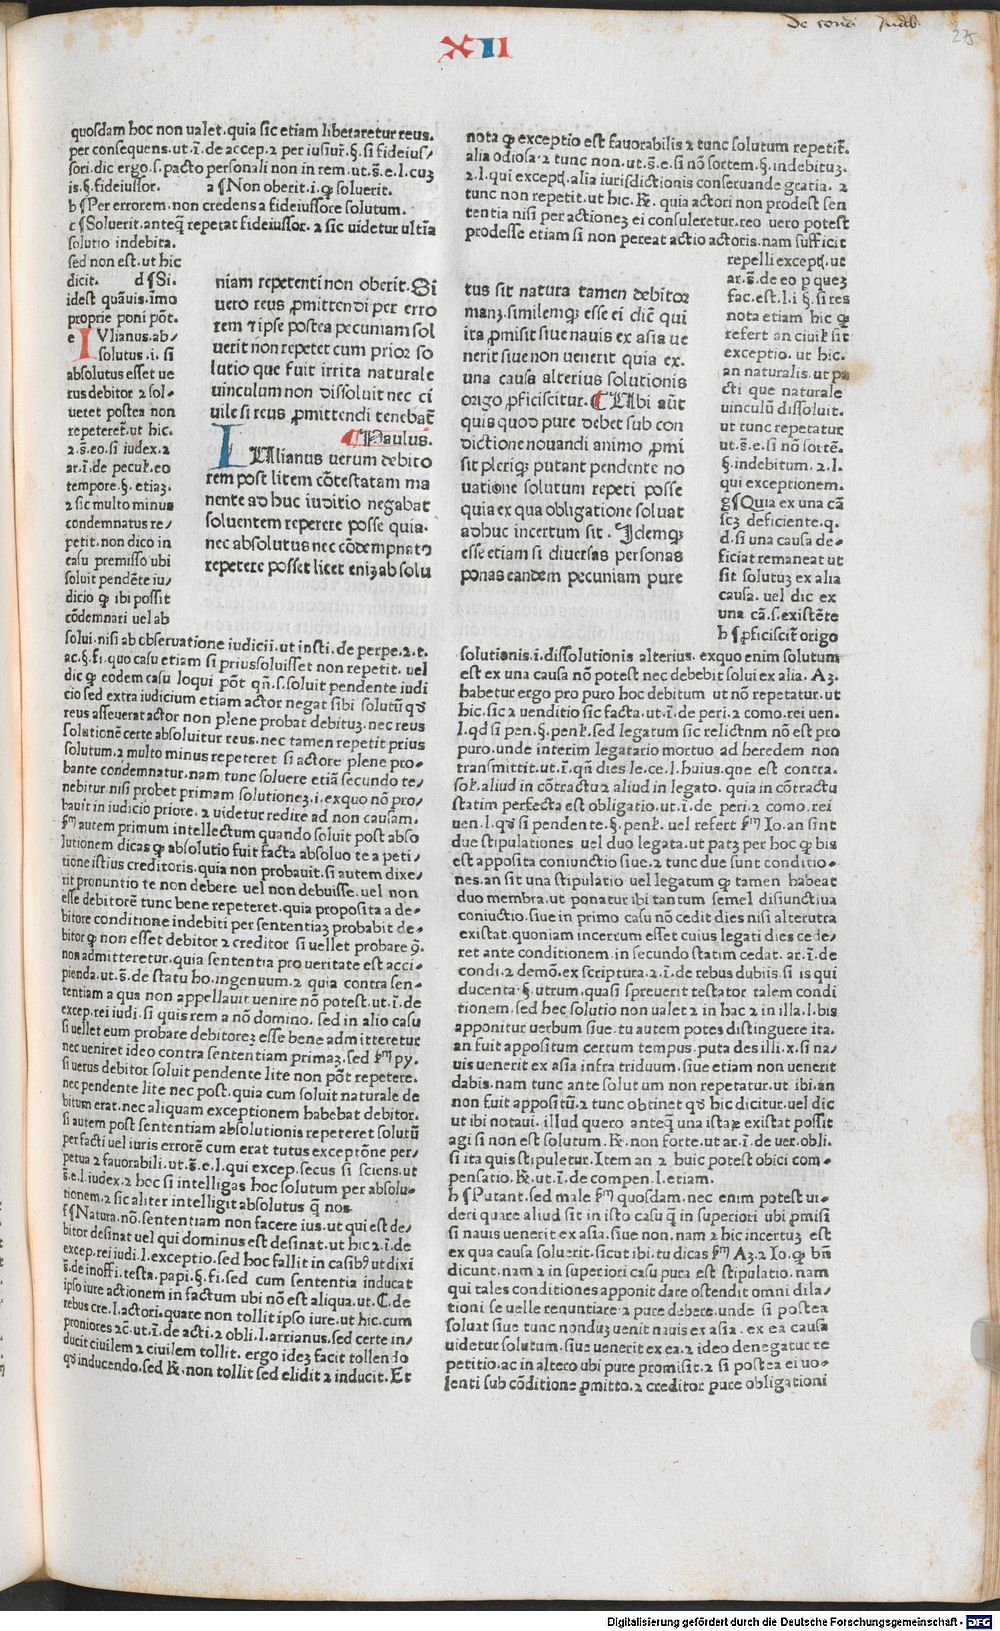 De condi Indeb.
275
XII
quosdam hoc non ualet. quia sic etiam liberaretur reus.
per consequens. ut. ī. de accep. ⁊ per iusiur̄. §. si fideius/
sori. dic ergo. s. pacto personali non in rem. ut. s̄. e. l. cuꝫ
is. §. fideiussor. a ¶ Non oberit. i. ꝙ soluerit.
b ¶ Per errorem. non credens a fideiussore solutum.
c ¶ Soluerit. anteꝗ repetat fideiussor. ⁊ sic uidetur ultīa
solutio indebita.
sed non est. ut hic
dicit. d ¶ Si.
idest quāuis. īmo
proprie poni pōt.
e IVlianus. ab/
solutus. i. si
absolutus esset ue
rus debitor ⁊ sol-
ueret postea non
repeteret̄. ut hic.
⁊. s̄. eo. si iudex. ⁊
ar. ī. de pecuł. eo
tempore. §. etiaꝫ.
⁊ sic multo minus
condemnatus re/
petit. non dico in
casu premisso ubi
soluit pendēte iu/
dicio ꝙ ibi possit
cōdemnari uel ab
solui. nisi ab obseruatione iudicii. ut insti. de perpe. ⁊. t.
ac. §. fi. quo casu etiam si prius soluisset non repetit. uel
dic ꝙ eodem casu loqui pōt qn̄. s. soluit pendente iudi
cio sed extra iudicium etiam actor negat sibi solutū qđ
reus asseuerat actor non plene probat debituꝫ. nec reus
solutionē certe absoluitur reus. nec tamen repetit prius
solutum. ⁊ multo minus repeteret si actore plene pro-
bante condemnatur. nam tunc soluere etiā secundo te/
nebitur. nisi probet primam solutioneꝫ. i. exquo nō pro/
bauit in iudicio priore. ⁊ uidetur redire ad non causam.
ẜm autem primum intellectum quando soluit post abso
lutionem dicas ꝙ absolutio fuit facta absoluo te a peti/
tione istius creditoris. quia non probauit. si autem dixe/
rit pronuntio te non debere uel non debuisse. uel non
esse debitorē tunc bene repeteret. quia proposita a de-
bitore conditione indebiti per sententiaꝫ probabit de-
bitor ꝙ non esset debitor ⁊ creditor si uellet probare ꝯ̄.
non admitteretur. quia sententia pro ueritate est acci-
pienda. ut. s̄. de statu ho. ingenuum. ⁊ quia contra sen-
tentiam a qua non appellauit uenire nō potest. ut. ī. de
excep. rei iudi. si quis rem a nō domino. sed in alio casu
si uellet eum probare debitoreꝫ esse bene admitteretur
nec ueniret ideo contra sententiam primaꝫ. sed ẜm py.
si uerus debitor soluit pendente lite non pōt repetere.
nec pendente lite nec post. quia cum soluit naturale de
bitum erat. nec aliquam exceptionem habebat debitor.
si autem post sententiam absolutionis repeteret solutū
per facti uel iuris errorē cum erat tutus exceptōne per/
petua ⁊ fauorabili. ut. s̄. e. l. qui excep. secus si sciens. ut
s̄. e. l. iudex. ⁊ hoc si intelligas hoc solutum per absolu-
tionem. ⁊ sic aliter intelligit absolutus ꝗ nos
f ¶ Natura. nō. sententiam non facere ius. ut qui est de/
bitor desinat uel qui dominus est desinat. ut hic ⁊. ī. de
excep. rei iudi. l. exceptio. sed hoc fallit in casibꝰ ut dixi
s̄. de inoffi. testa. papi. §. fi. sed cum sententia inducat
ipso iure actionem in factum ubi nō est aliqua. ut. C. de
rebus cre. l. actori. quare non tollit ipso iure. ut hic. cum
proniores ⁊c̄. ut. ī. de acti. ⁊ obli. l. arrianus. sed certe in/
ducit ciuilem ⁊ ciuilem tollit. ergo ideꝫ facit tollendo
qđ inducendo. sed ℞. non tollit sed elidit ⁊ inducit. Et
niam repetenti non oberit. Si
uero reus ꝓmittendi per erro
rem ⁊ ipse postea pecuniam sol
uerit non repetet cum prior so
lutio que fuit irrita naturale
uinculum non dissoluit nec ci
uile si reus ꝓmittendi tenebat̄
¶ Paulus.
IUlianus uerum debito
rem post litem cōtestatam ma
nente adhuc iuditio negabat
soluentem repetere posse quia.
nec absolutus nec cōdempnatꝰ
repetere posset licet eniꝫ absolu
nota ꝙ exceptio est fauorabilis ⁊ tunc solutum repetit̄.
alia odiosa. ⁊ tunc non. ut. s̄. e. si nō sortem. §. indebituꝫ.
⁊. l. qui except̄. alia iurisdictionis conseruande gratia. ⁊
tunc non repetit. ut hic. ℞. quia actori non prodest sen
tentia nisi per actioneꝫ ei consuleretur. reo uero potest
prodesse etiam si non pereat actio actoris. nam sufficit
repelli except̄. ut
ar. s̄. de eo p queꝫ
fac. est. l. i §. si res
nota etiam hic ꝙ
refert an ciuił sit
exceptio. ut hic.
an naturalis. ut pa
cti que naturale
uinculū dissoluit.
ut tunc repetatur
ut. s̄. e. si nō sortē.
§. indebitum. ⁊. l.
qui exceptionem.
g ¶ Quia ex una cā
scꝫ deficiente. q.
d. si una causa de-
ficiat remaneat ut
sit solutuꝫ ex alia
causa. uel dic ex
una cā. s. existēte
h ¶ ꝓficiscit̄ origo
tus sit natura tamen debitor
manꝫ. similemꝗ esse ei diē qui
ita ꝓmisit siue nauis ex asia ue
nerit siue non uenerit quia ex.
una causa alterius solutionis
origo ꝓficiscitur. ¶ Ubi aūt
quis quod pure debet sub con
dictione nouandi animo ꝓmi
sit pleriꝗ putant pendente no
uatione solutum repeti posse
quia ex qua obligatione soluat
adhuc incertum sit. Idemꝗ
esse etiam si diuersas personas
ponas eandem pecuniam pure
solutionis. i. dissolutionis alterius. exquo enim solutum
est ex una causa nō potest nec debebit solui ex alia. Aꝫ.
habetur ergo pro puro hoc debitum ut nō repetatur. ut
hic. sic ⁊ uenditio sic facta. ut. ī. de peri. ⁊ como. rei uen.
l. qđ si pen. §. penł. sed legatum sic relictum nō est pro
puro. unde interim legatario mortuo ad heredem non
transmittit. ut. ī. qn̄ dies le. ce. l. huius. que est contra.
soł. aliud in cōtractu ⁊ aliud in legato. quia in cōtractu
statim perfecta est obligatio. ut. ī. de peri. ⁊ como. rei
uen. l. qđ si pendente. §. penł. uel refert ẜm Io. an sint
due stipulationes uel duo legata. ut patꝫ per hoc ꝙ bis
est apposita coniunctio siue. ⁊ tunc due sunt conditio-
nes. an sit una stipulatio uel legatum ꝙ tamen habeat
duo membra. ut ponatur ibi tantum semel disiunctiua
coniuctio. siue in primo casu nō cedit dies nisi alterutra
existat. quoniam incertum esset cuius legati dies cede/
ret ante conditionem. in secundo statim cedat. ar. ī. de
condi. ⁊ demō. ex scriptura. ⁊. ī. de rebus dubiis. si is qui
ducenta. §. utrum. quasi spreuerit testator talem condi
tionem. sed hec solutio non ualet ⁊ in hac ⁊ in illa. l. bis
apponitur uerbum siue. tu autem potes distinguere ita.
an fuit appositum certum tempus. puta des illi. x. si na/
uis uenerit ex asia infra triduum. siue etiam non uenerit
dabis. nam tunc ante solutum non repetatur. ut ibi. an
non fuit appositū. ⁊ tunc obtinet qđ hic dicitur. uel dic
ut ibi notaui. illud quero anteꝗ una istaꝝ existat possit
agi si non est solutum. ℞. non forte. ut ar. ī. de uer. obli.
si ita quis stipuletur. Item an ⁊ huic potest obici com-
pensatio. ℞. ut. ī. de compen. l. etiam.
h ¶ Putant. sed male ẜm quosdam. nec enim potest ui-
deri quare aliud sit in isto casu ꝗ in superiori ubi ꝓmisi
si nauis uenerit ex asia. siue non. nam ⁊ hic incertuꝫ est
ex qua causa soluerit. sicut ibi. tu dicas ẜm Aꝫ. ⁊ Io. ꝙ bn̄
dicunt. nam ⁊ in superiori casu pura est stipulatio. nam
qui tales conditiones apponit dare ostendit omni dila/
tioni se uelle renuntiare ⁊ pure debere. unde si postea
soluat siue tunc nonduꝫ uenit nauis ex asia. ex ea causa
uidetur solutum. siue uenerit ex ea. ⁊ ideo denegatur re
petitio. ac in altero ubi pure promisit. ⁊ si postea ei uo-
lenti sub cōditione ꝓmitto. ⁊ creditor pure obligationi
Digitalisierung gefördert durch die Deutsche Forschungsgemeinschaft - DFG